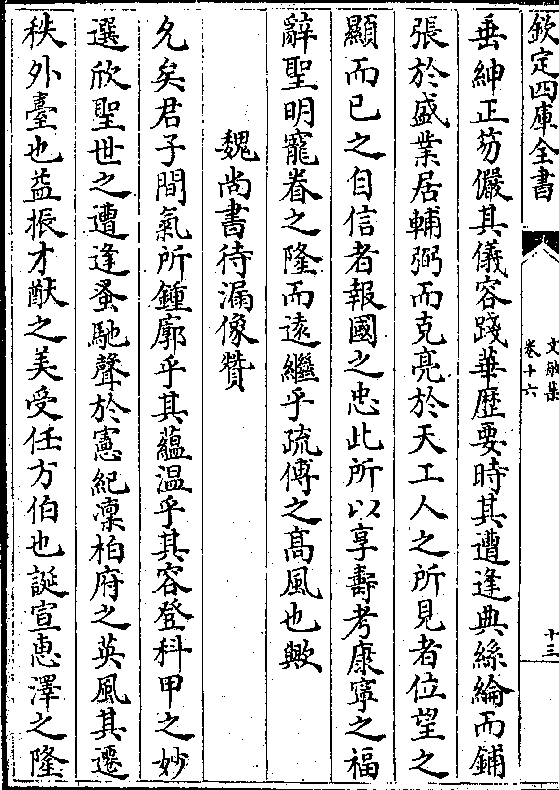 欽定四庫全書
文敏集
卷十六
十三
垂紳正笏儼其儀容踐華歴要時其遭逢典絲綸而鋪
張於盛業居輔弼而克亮於天工人之所見者位望之
顯而已之自信者報國之忠此所以享壽考康寧之福
辭聖明寵眷之隆而逺繼乎疏傅之髙風也歟
魏尚書待漏像贊
允矣君子間氣所鍾廓乎其藴温乎其容登科甲之妙
選欣聖世之遭逢蚤馳聲於憲紀凜柏府之英風其遷
秩外臺也益振才猷之美受任方伯也誕宣惠澤之隆